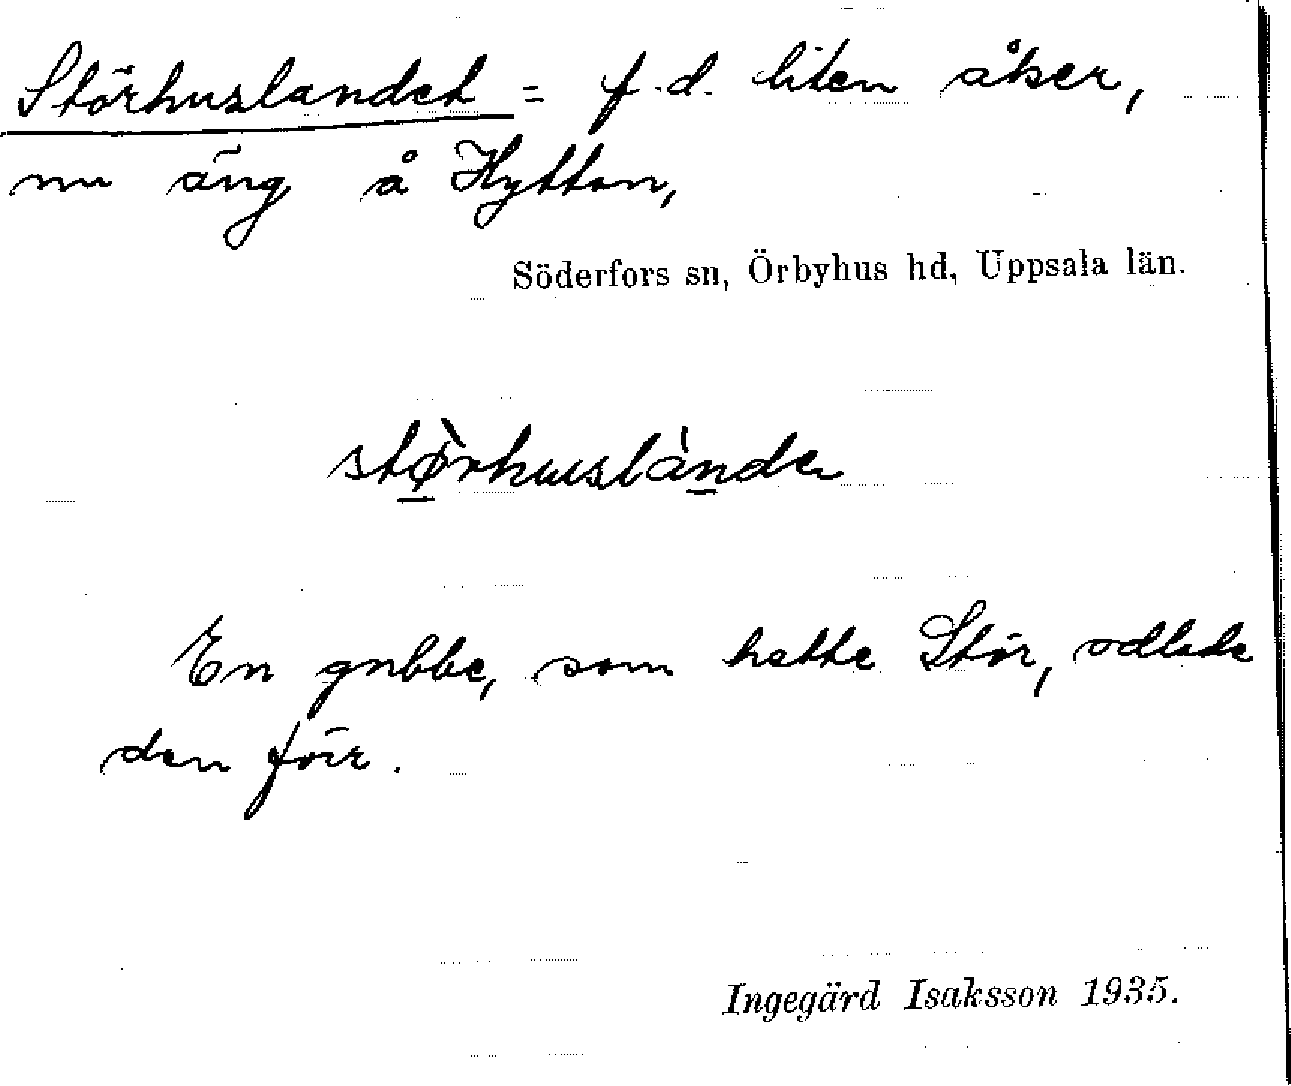 Störhuslandet = f.d. liten åker,
nu äng å Hytton,
Söderfors sn, Örbyhus hd, Uppsala län.
stø̀rhuslànde
En gubbe, som hette Stör, odlade
den förr.
Ingegärd Isaksson 1935.